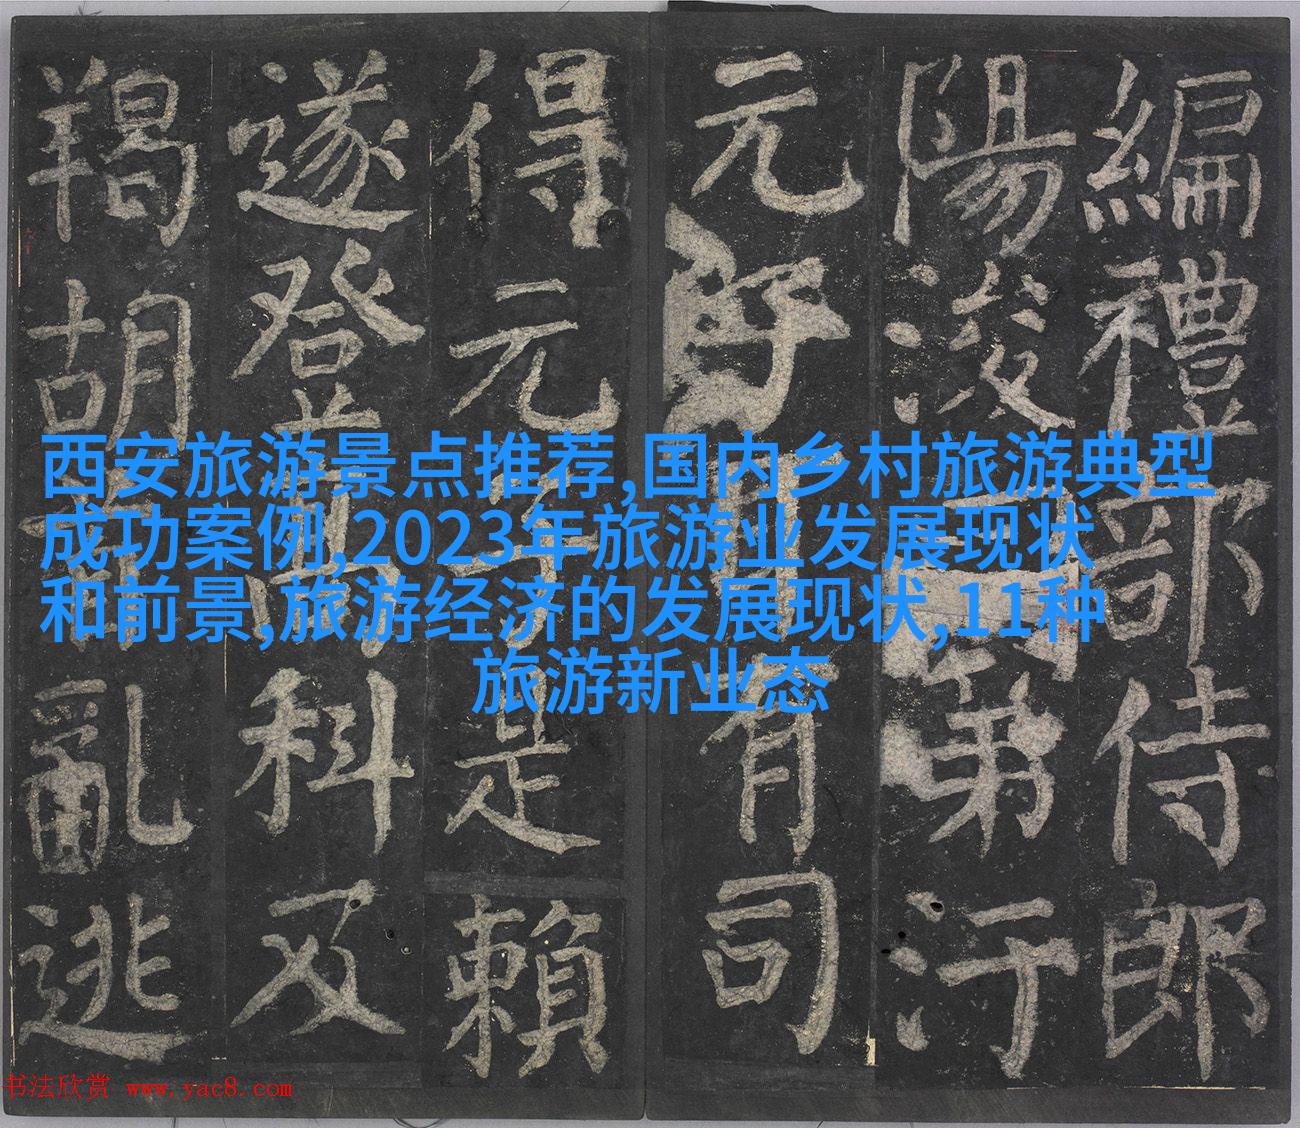 編禮部侍郎
陽浚第汙
元有司
得元子是賴
遂登高科及
羯胡首亂逃
西安旅游景点推荐,国内乡村旅游典型
成功案例,2023年旅游业发展现状
和前景,旅游经济的发展现状,11种
旅游新业态
书法欣赏 www.yac8.com